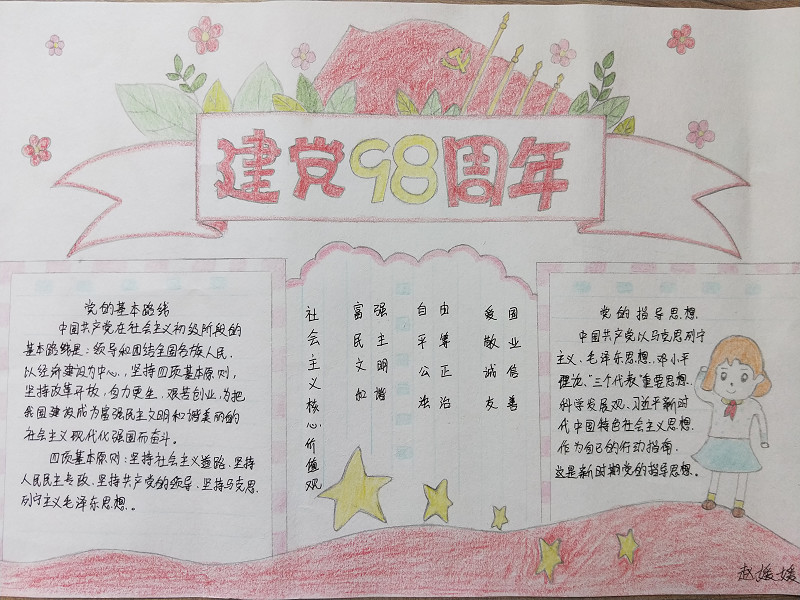 建党98周年
党的基本路线
中国共产党在社会主义初级阶段的
基本路线是：领导和团结全国各族人民，
以经济建设为中心，坚持四项基本原则，
坚持改革开放，自力更生，艰苦创业，为把
我国建设成为富强民主文明和谐美丽的
社会主义现代化强国而奋斗。
四项基本原则：坚持社会主义道路、坚持
人民民主专政、坚持共产党的领导、坚持马克思
列宁主义毛泽东思想。
社会主义核心价值观
富强 自由 爱国
民主 平等 敬业
文明 公正 诚信
和谐 法治 友善
党的指导思想
中国共产党以马克思列宁
主义、毛泽东思想、邓小平
理论、“三个代表”重要思想、
科学发展观、习近平新时
代中国特色社会主义思想
作为自己的行动指南，
这是新时期党的指导思想。
赵媛媛